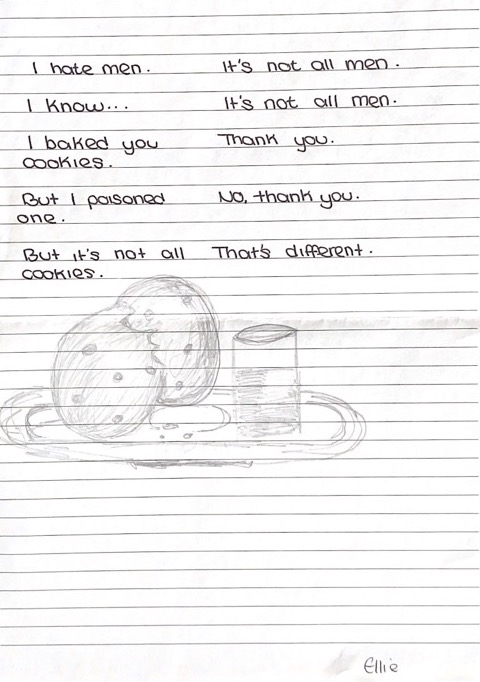 I hate men. It's not all men.
I know... It's not all men.
I baked you Thank you.
cookies.
But I poisoned No, thank you.
one.
But it's not all That's different.
cookies.
Ellie